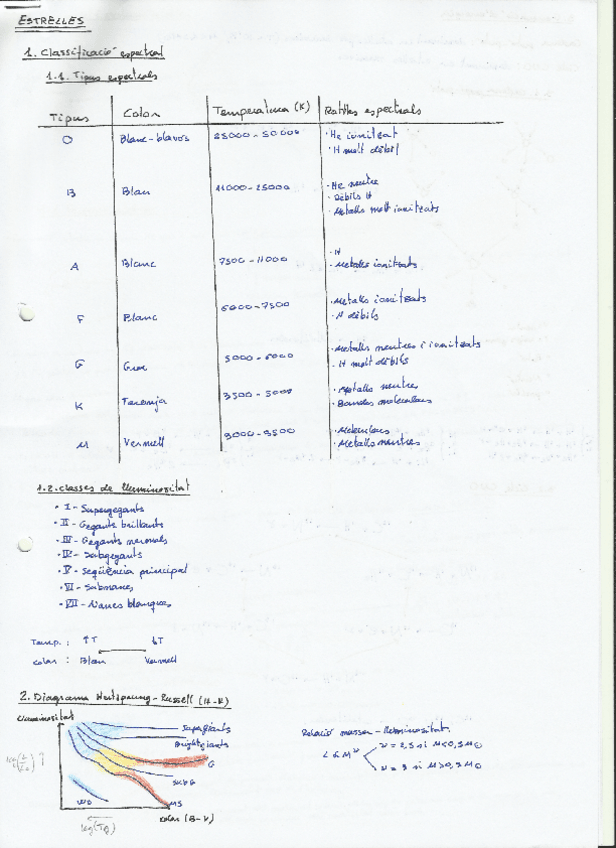 ESTRELLES
1. Classificació espectral
1.1. Tipus espectrals
Tipus Color Temperatura (K) Ratlles espectrals
O Blanc-blavós 25000-50000 · He ionitzat
· H molt dèbil
B Blau 11000-25000 · He neutre
· Dèbils H
· Metalls molt ionitzats
A Blanc 7500-11000 · H
· Metalls ionitzats
F Blanc 6000-7500 · Metalls ionitzats
· H dèbils
G Groc 5000-6000 · Metalls neutres i ionitzats
· H molt dèbils
K Taronja 3500-5000 · Metalls neutres
· Bandes moleculars
M Vermell 3000-3500 · Molèculas
· Metalls neutres
1.2. Classes de lluminositat
· I - Supergegants
· II - Gegants brillants
· III - Gegants normals
· IV - Subgegants
· V - Seqüència principal
· VI - Subnanes
· VII - Nanes blanques
Temp. : ↑T ↓T
Color : Blau Vermell
2. Diagrama Hertzsprung-Russell (H-R)
Lluminositat
Supergiants
Bright giants
G
SubG
WD MS
Color (B-V)
Relació massa-lluminositat.